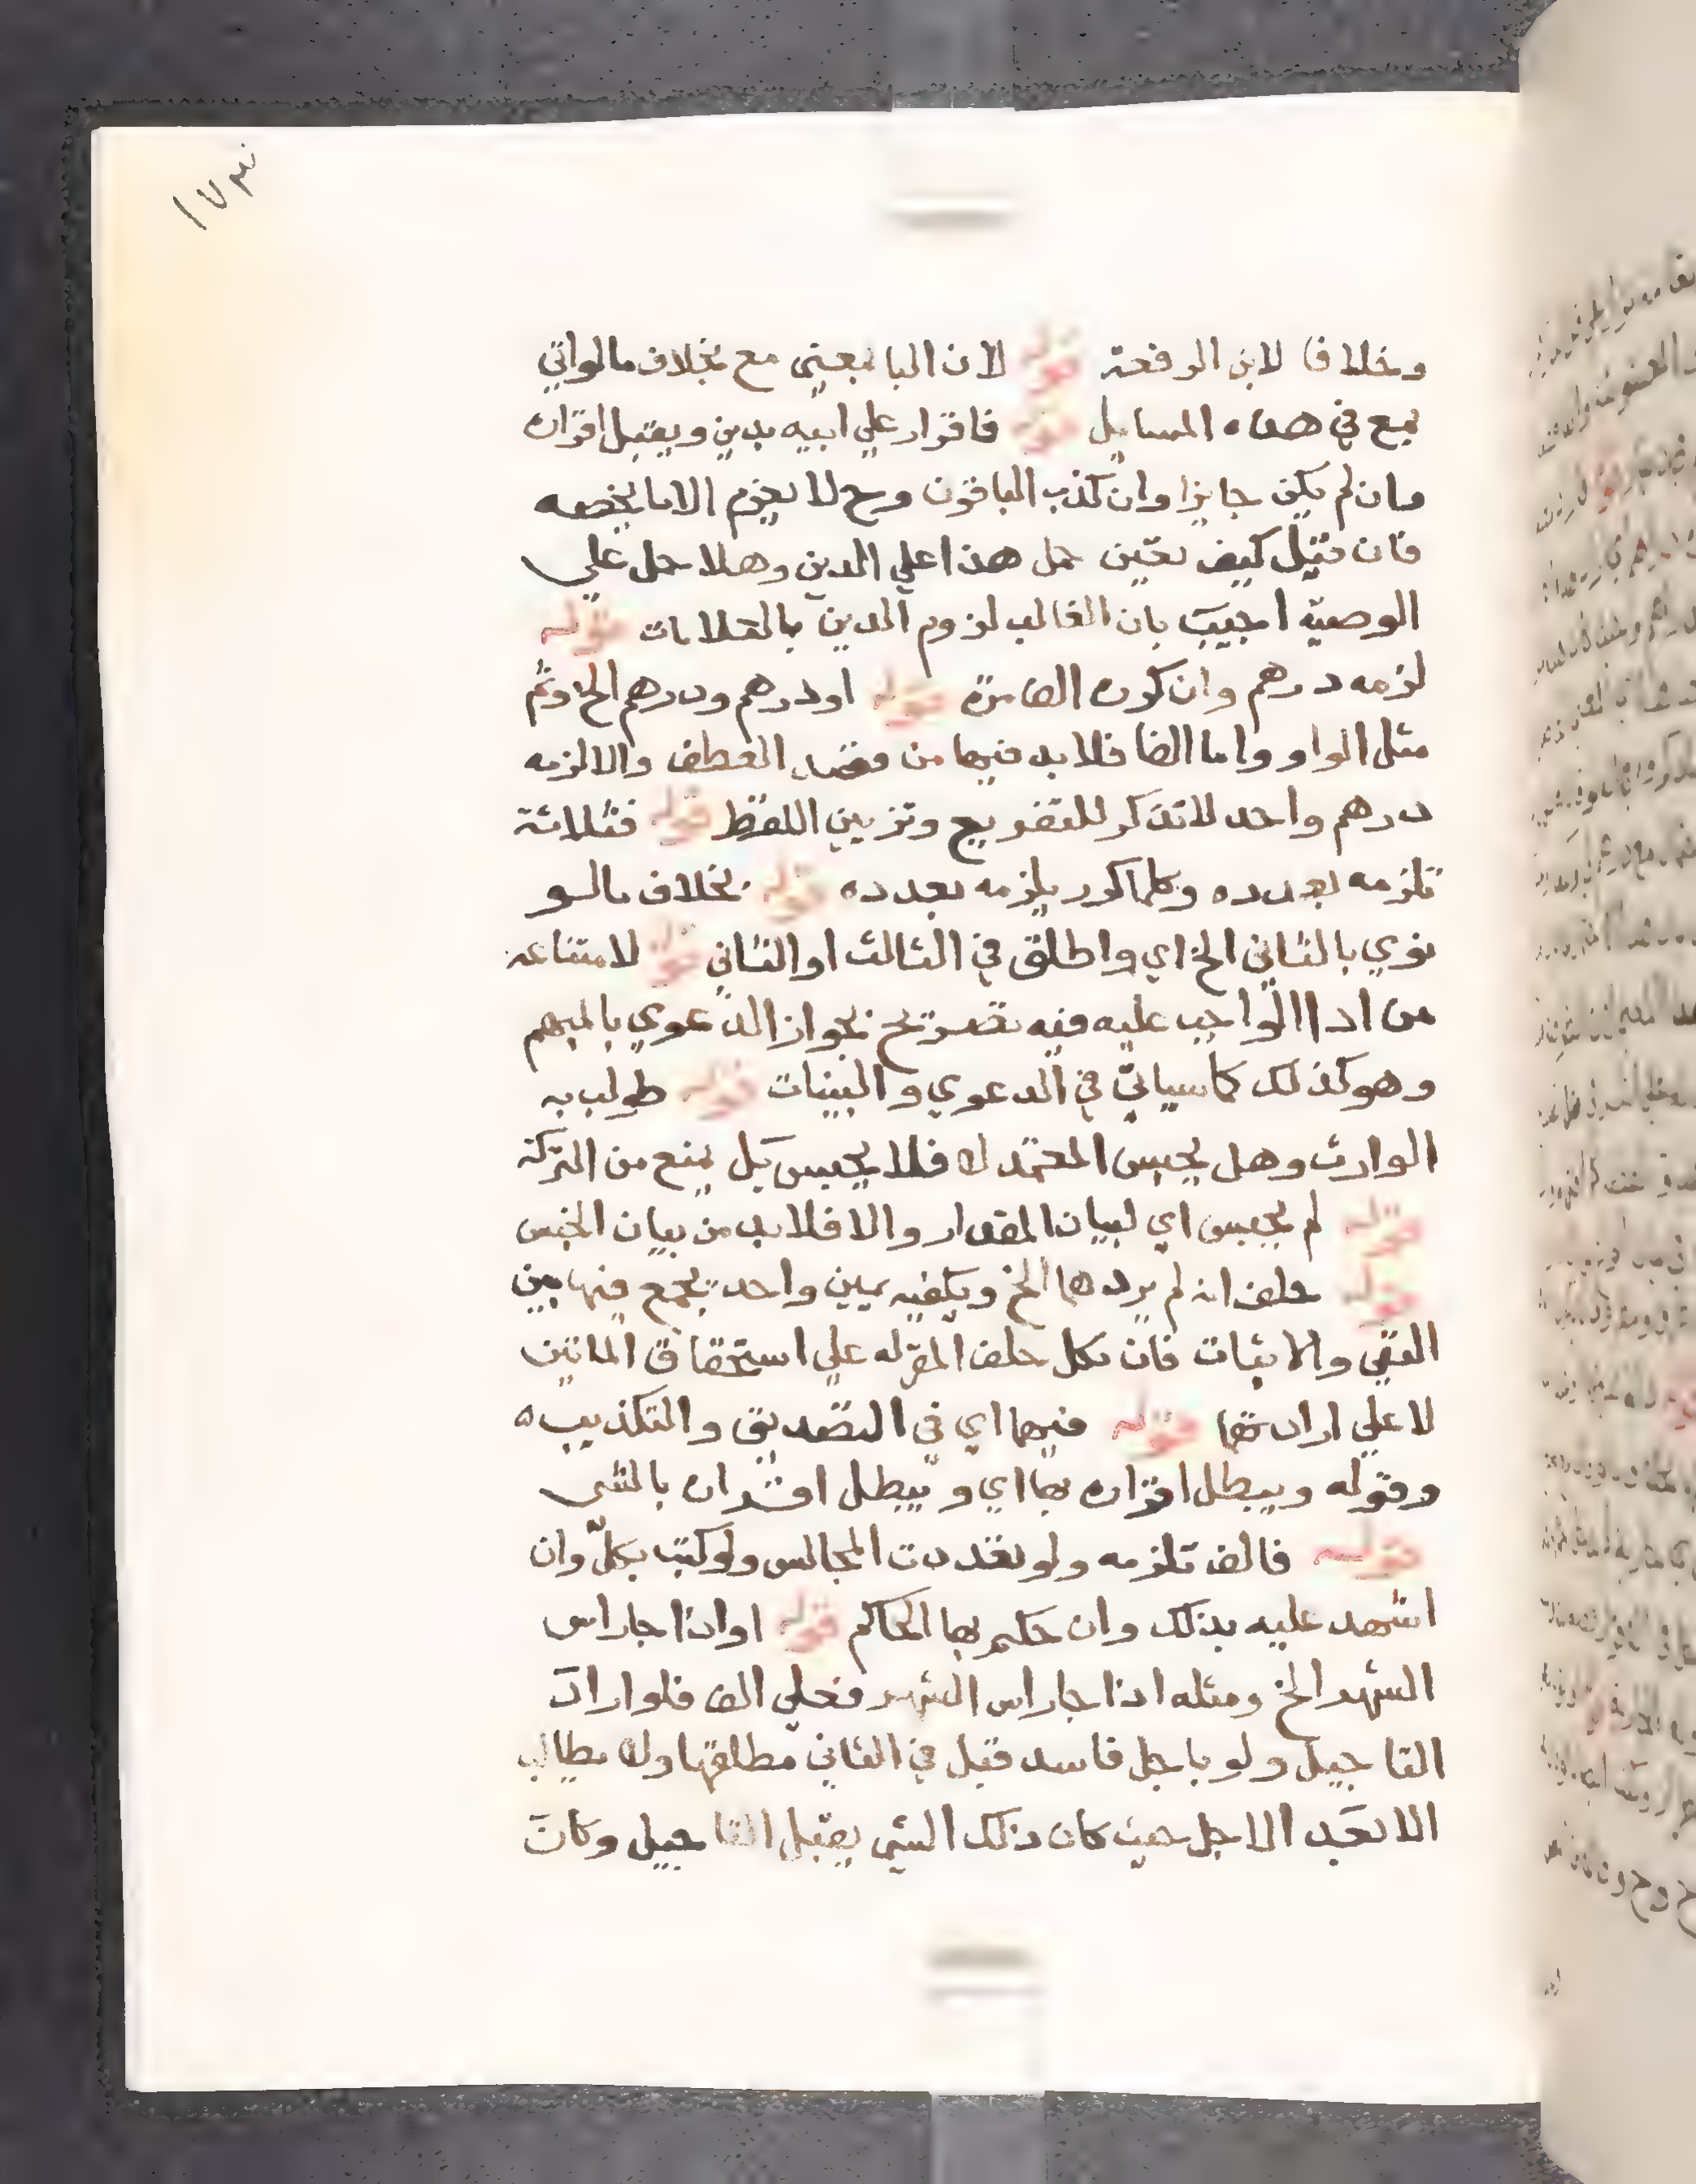 ١٧٣
وخلافا لابن الرفعة قوله لان البا بمعني مع بخلاف مالواتي
بمع في هده المسايل قوله فاقرار علي ابيه بدين ويقبل اقراره
وان لم يكن جايزا وان كذب الباقون وح لا يغرم الا ما يخصه
فان قيل كيف تعين حمل هذا علي الدين وهلا حمل علي
الوصية اجيب بان الغالب لزوم الدين بالعلامات قوله
لزمه درهم وان كرره الف مرة قوله او درهم ودرهم الخ وثم
مثل الواو واما الفا فلا بد فيها من قصد العطف والا لزمه
درهم واحد لانها تذكر للتفريع وتزيين اللفظ قوله فثلاثة
تلزمه بعدده وكلما كرر يلزمه بعدده قوله بخلاف مالو
نوي بالثاني الخ اي واطلق في الثالث او الثاني قوله لامتناعه
من ادا الواجب عليه فيه تصريح بجواز الدعوي بالمبهم
وهو كذلك كما سياتي في الدعوي والبينات قوله طولب به
الوارث وهل يحبس المعتمد لا فلا يحبس بل يمنع من التركة
قوله لم يحبس اي لبيان المقدار والا فلا بد من بيان الجنس
قوله حلف انه لم يردهما الخ ويكفيه يمين واحد يجمع فيها بين
النفي والاثبات فان نكل حلف المقر له علي استحقاق الماتين
لا علي ارادتهما قوله فيهما اي في التصديق والتكذيب ه
وقوله ويبطل اقراره بها اي ويبطل اقراره بالشي
قوله فالف تلزمه ولو تعددت المجالس ولو كتب بكل وان
اشهد عليه بذلك وان حكم بها الحاكم قوله او اذا جا راس
الشهر الخ ومثله اذا جا راس الشهر فعلي الف فلو اراد
التاجيل ولو باجل فاسد قبل في الثاني مطلقها ولا يطالب
الا بعد الاجل حيث كان ذلك الشي يقبل التاجيل وكان